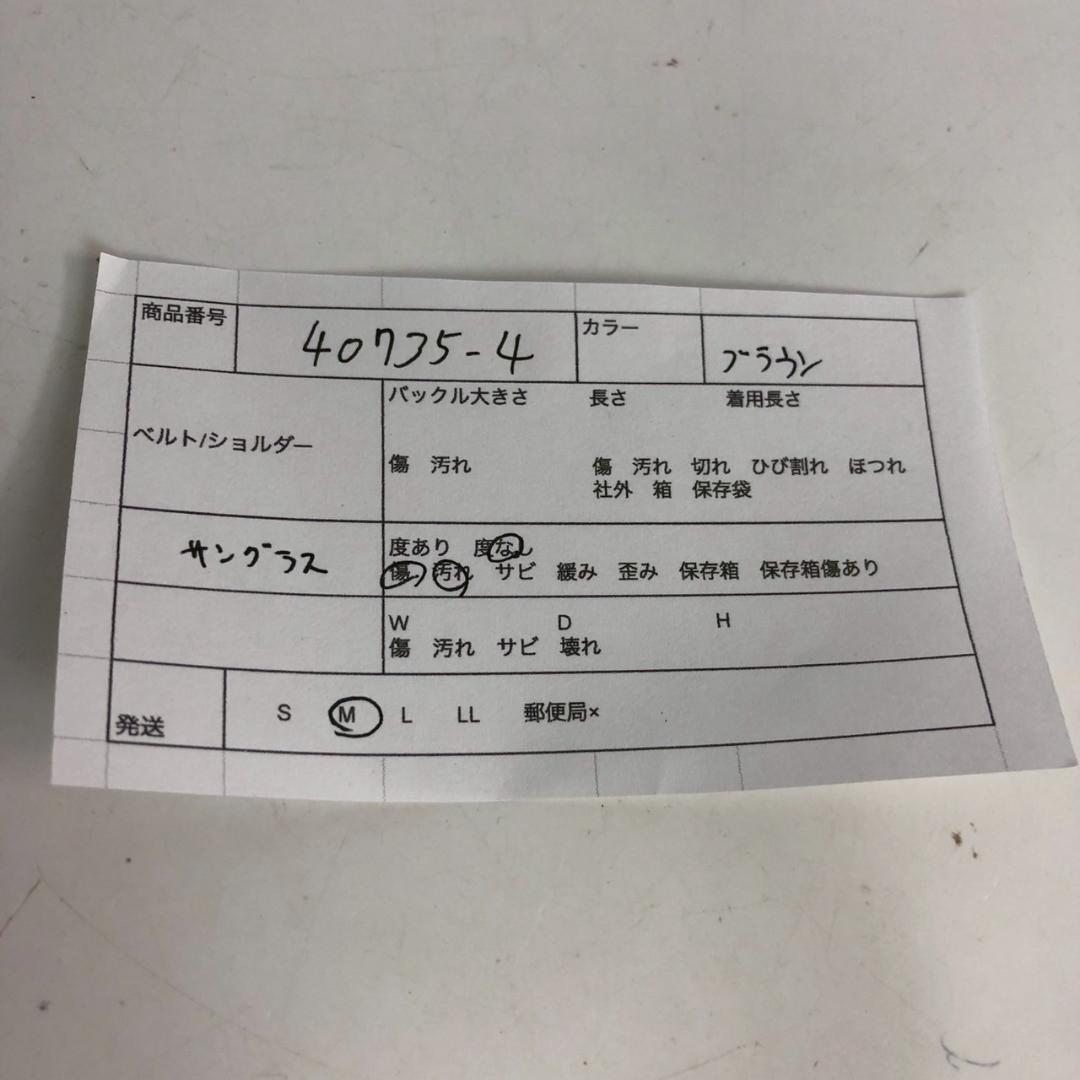 商品番号 40735-4 カラー ブラウン
ベルト/ショルダー
バックル大きさ 長さ 着用長さ
傷 汚れ 傷 汚れ 切れ ひび割れ ほつれ
社外 箱 保存袋
サングラス
度あり 度なし
傷 汚れ サビ 緩み 歪み 保存箱 保存箱傷あり
W D H
傷 汚れ サビ 壊れ
発送 S M L LL 郵便局×